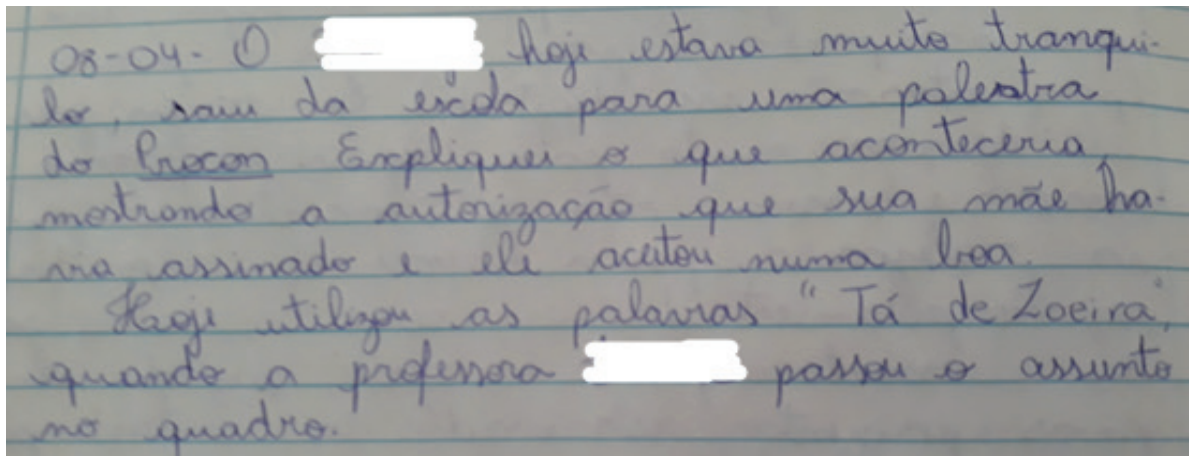 08-04- O hoje estava muito tranqui-
lo, saiu da escola para uma palestra
do Procon Expliquei o que aconteceria,
mostrando a autorização que sua mãe ha-
via assinado e ele aceitou numa boa.
Hoje utilizou as palavras "Tá de Zoeira",
quando a professora passou o assunto
no quadro.